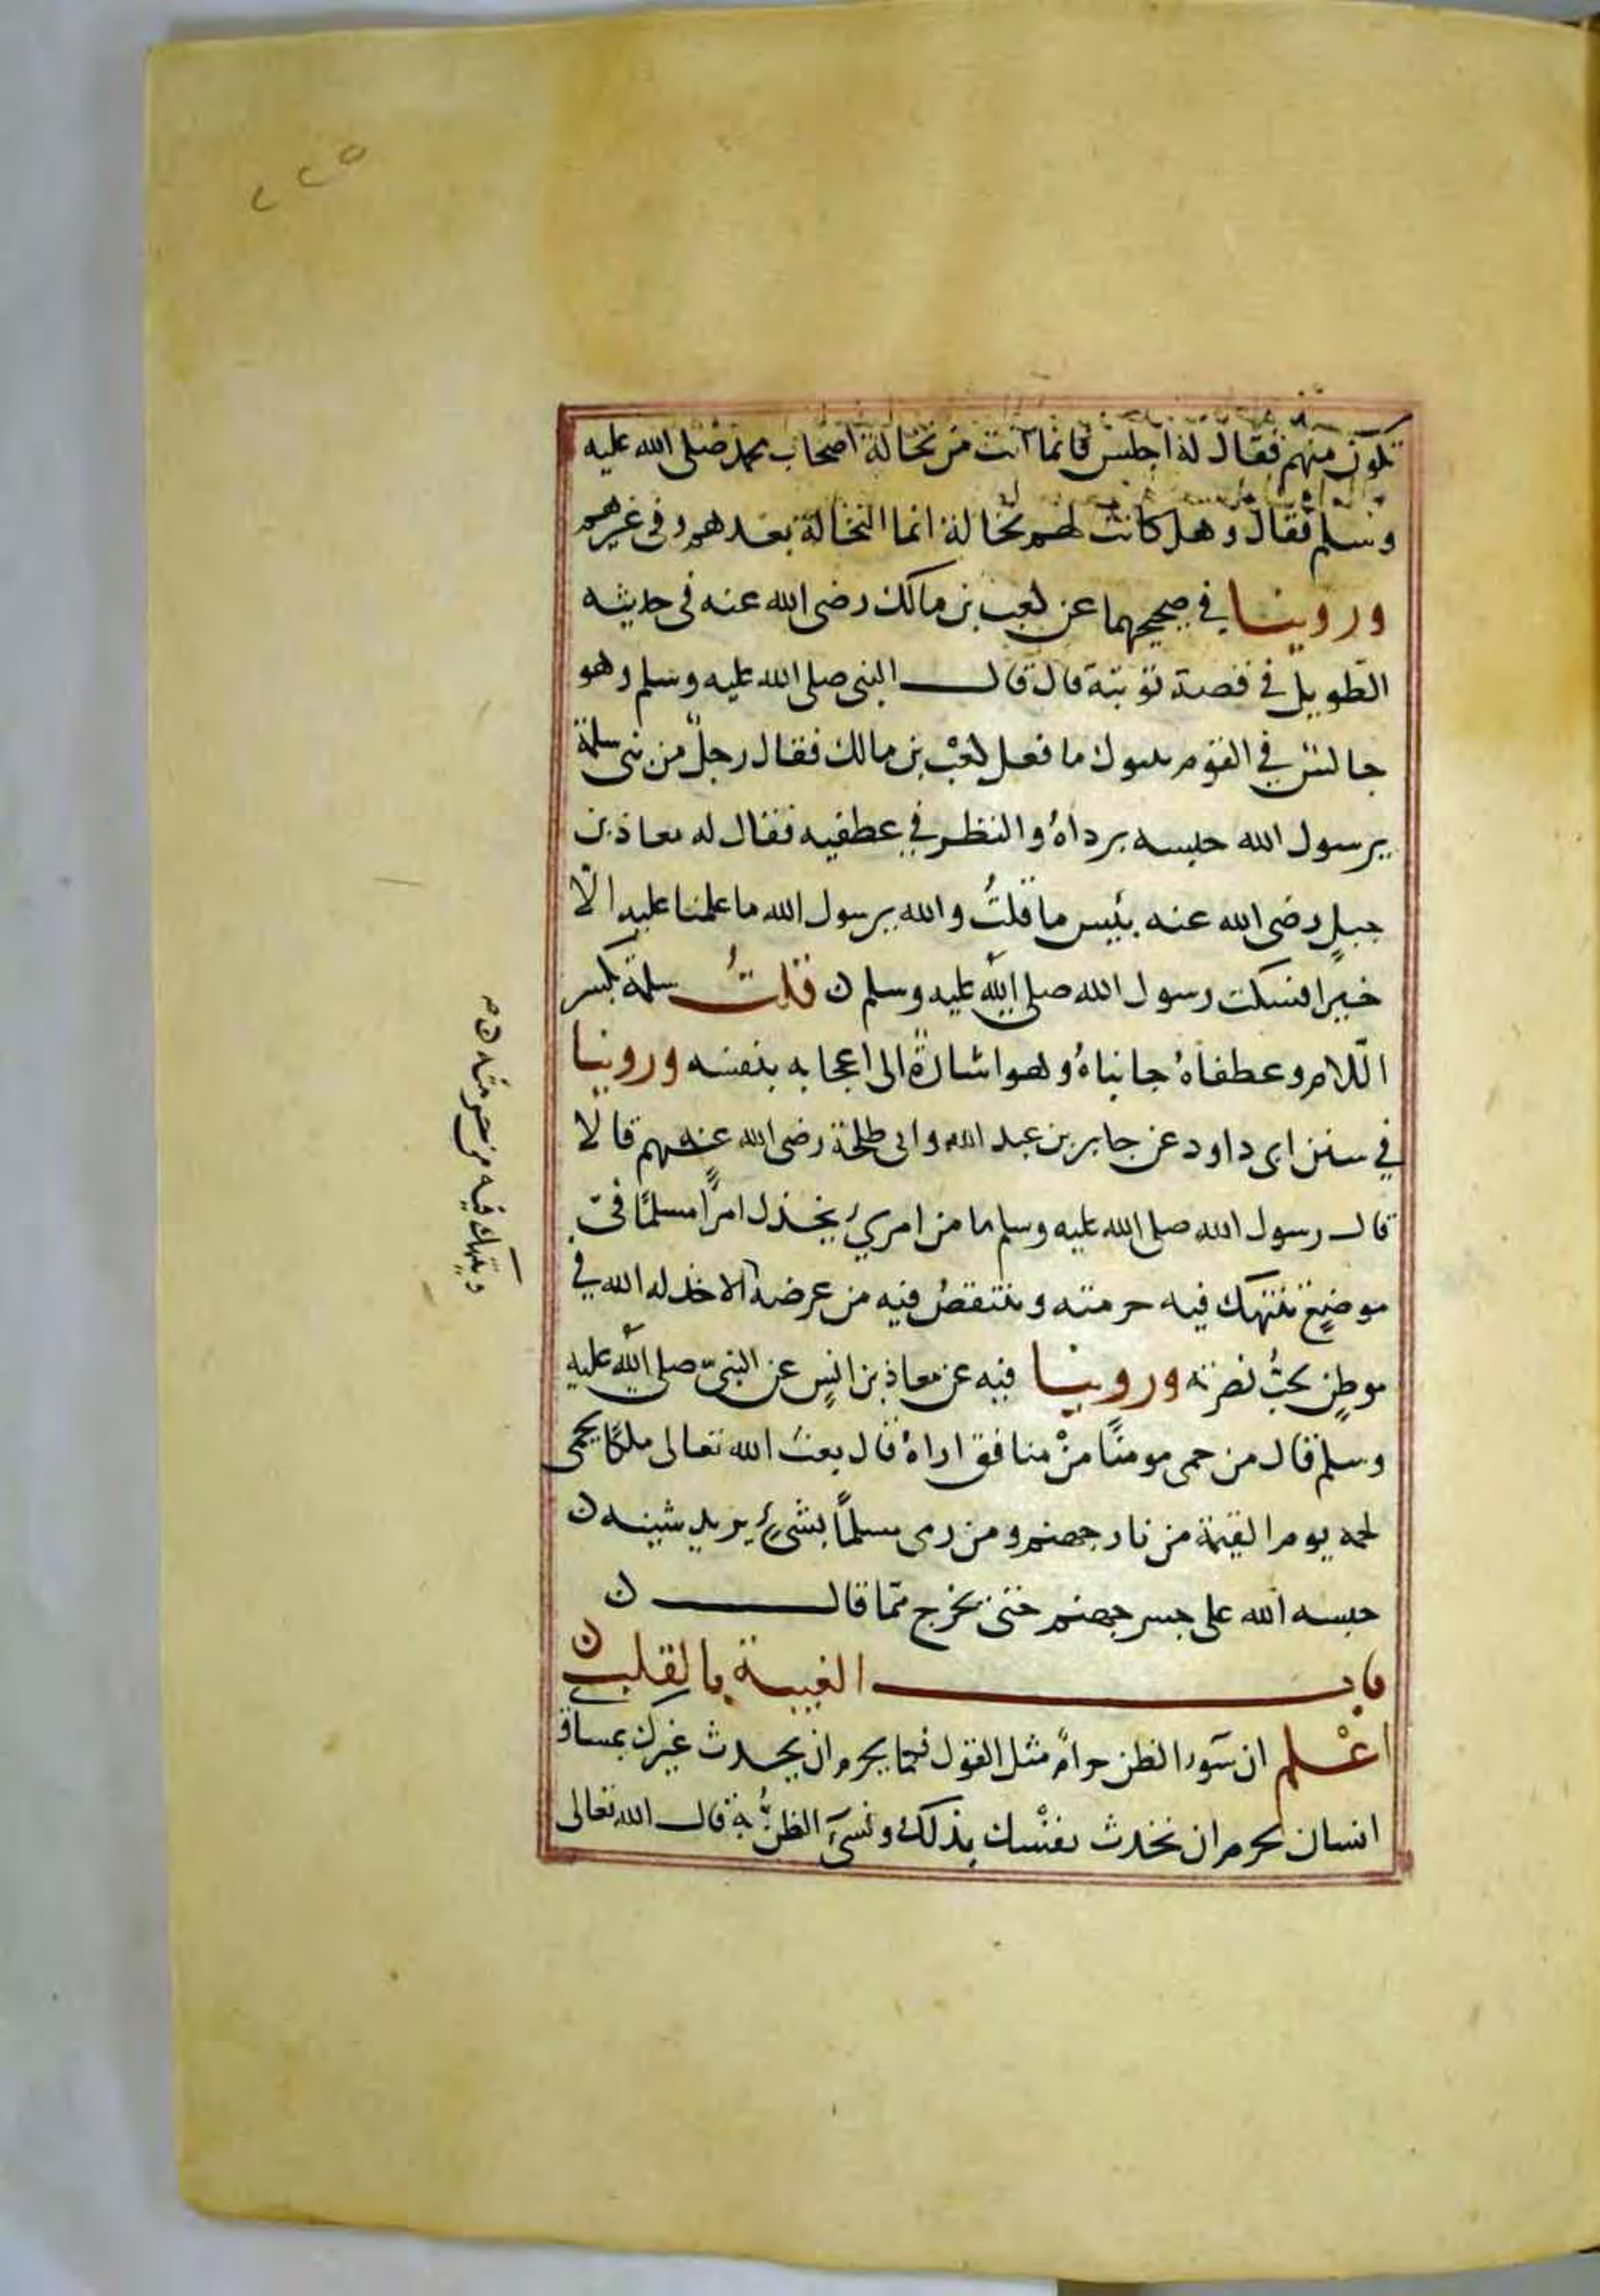 ٢٢٥
تكون منهم فقال له اجلس فانما انت من نخالة اصحاب محمد صلى الله عليه
وسلم فقال وهل كانت لهم نخالة انما النخالة بعدهم وفى غيرهم
وروينا في صحيحهما عن كعب بن مالك رضى الله عنه فى حديثه
الطويل في قصة توبته قال قال النبى صلى الله عليه وسلم وهو
جالس في القوم بتبوك ما فعل كعب بن مالك فقال رجلٌ من بنى سلمة
يرسول الله حبسه برداهُ والنظر في عطفيه فقال له معاذ بن
جبلٍ رضى الله عنه بئيس ما قلتُ والله يرسول الله ما علمنا عليه الّا
خيرا فسكت رسول الله صلى الله عليه وسلم ن قلتُ سلمة بكسر
اللّام وعطفاهُ جانباهُ وهو اشارةٌ الى اعجابه بنفسه وروينا
في سنن ابى داود عن جابر بن عبد الله وابى طلحة رضى الله عنهم قالا
قال رسول الله صلى الله عليه وسلم ما من امرئٍ يخذل امرًا مسلمًا فى
موضعٍ تنتهك فيه حرمته وينتقصُ فيه من عرضه الا خذله الله في
موطنٍ يحبُّ نصرته وروينا فيه عن معاذ بن انسٍ عن النبىّ صلى الله عليه
وسلم قال من حمى مومنًا منْ منافق اراهُ قال بعث الله تعالى ملكًا يحمى
لحمه يوم القيمة من نار جهنم ومن رمى مسلمًا بشىءٍ يريد شينه ن
حبسه الله على جسر جهنم حتى يخرج ممّا قال ن
باب الغيبة بالقلب ن
اعْلم ان سوء الظن حرامٌ مثل القول فكما يحرم ان يحدث غيرك بمساوى
انسان يحرم ان تحدث نفسْك بذلك وتسىَٔ الظنُّ به قال الله تعالى
وينتهك فيه من حرمته ن